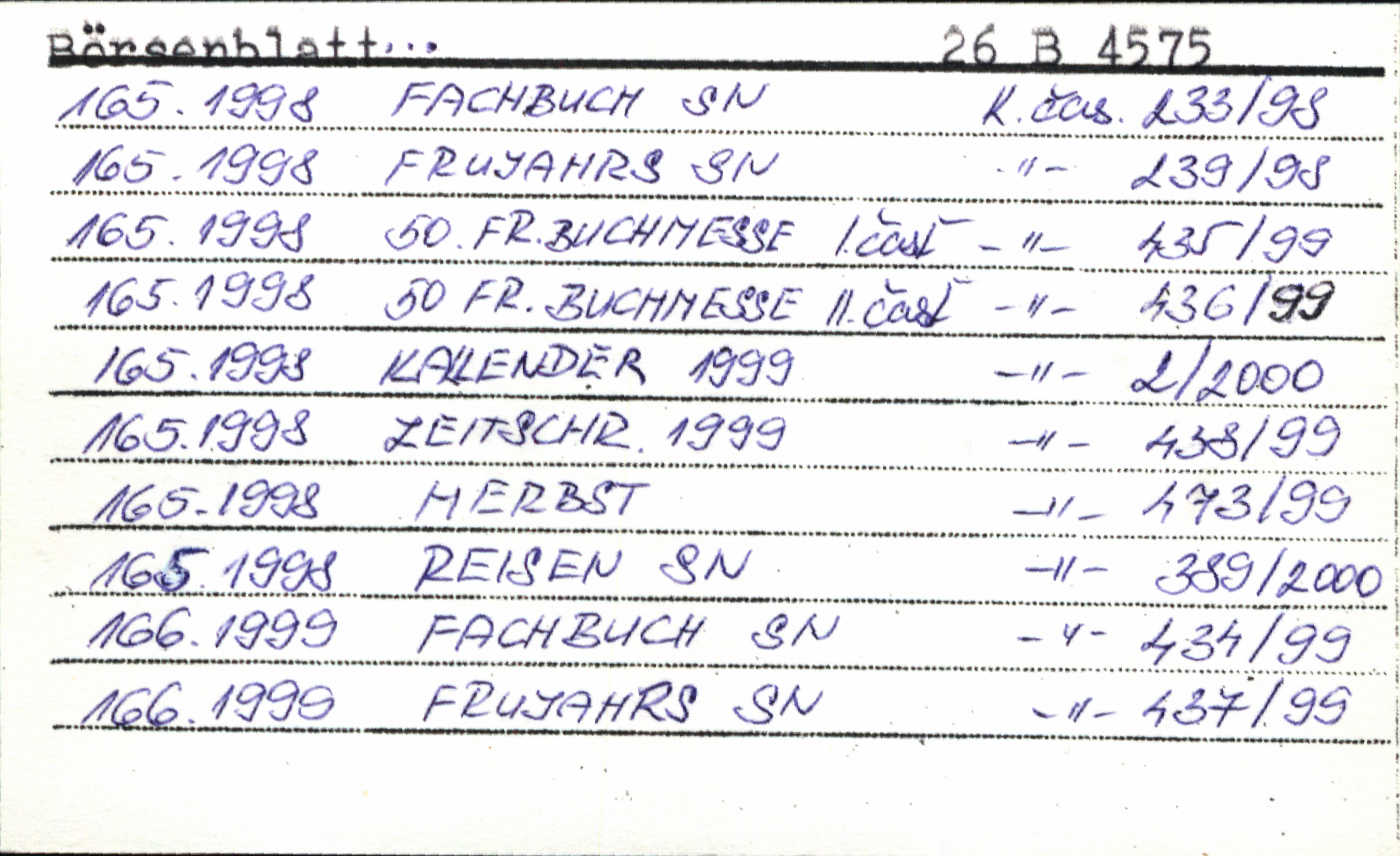 Börsenblatt... 26 B 4575
165. 1998 FACHBUCH SN K. čas. 233/98
165. 1998 FRUJAHRS SN -"- 239/98
165. 1998 50. FR. BUCHMESSE I. časť -"- 435/99
165. 1998 50 FR. BUCHMESSE II. časť -"- 436/99
165. 1998 KALENDER 1999 -"- 2/2000
165. 1998 ZEITSCHR. 1999 -"- 438/99
165. 1998 HERBST -"- 473/99
165. 1998 REISEN SN -"- 389/2000
166. 1999 FACHBUCH SN -"- 434/99
166. 1999 FRUJAHRS SN -"- 437/99